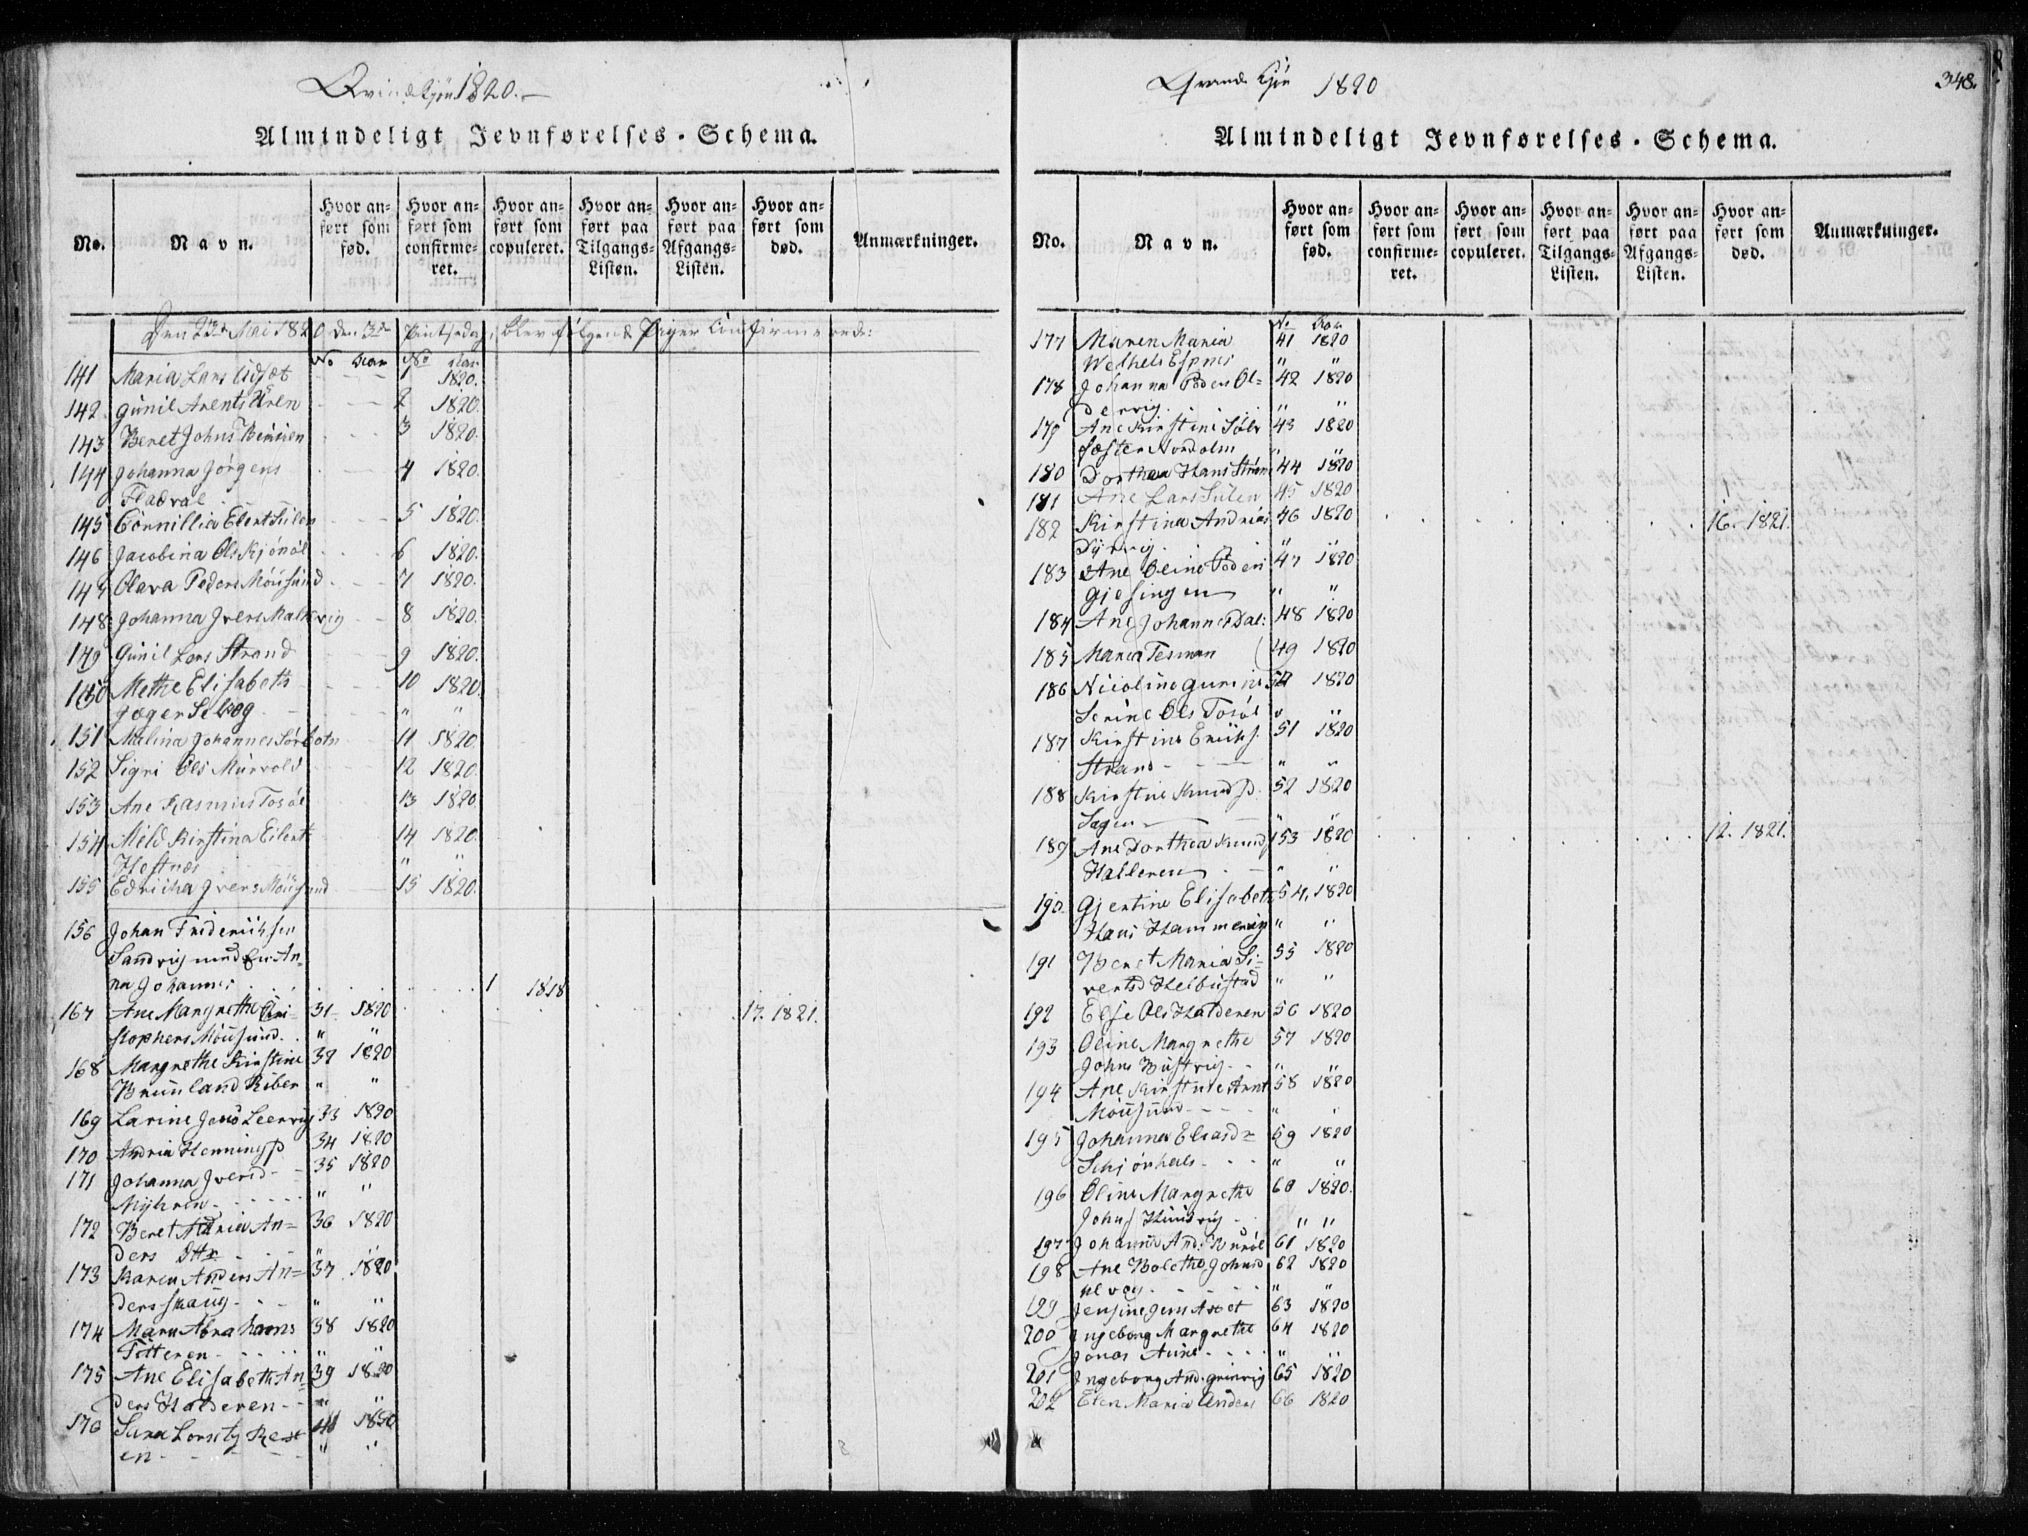 Qvindekjøn 1820.
Almindeligt Jevnførelses-Schema.
No.
Navn.
Hvor anført som fød.
Hvor anført som confirmeret.
Hvor anført som copuleret.
Hvor anført paa Tilgangs-Listen.
Hvor anført paa Afgangs-Listen.
Hvor anført som død.
Anmærkninger.
Den 23de Mai 1820 den 3de Pintsedag, blev følgende Piger Confirmerede:
No Aar No Aar
141 Maria Lars 1 1820.
142 Gunil Arents Uren 2 1820.
143 Beret Johns 3 1820.
144 Johanna Jörgens 4 1820.
Fladval
145 Cornillia Elert Sulen 5 1820.
146 Jacobina Ols Kjönöl 6 1820.
147 Olava Peders Mousund 7 1820.
148 Johanna Ivers Malkvig 8 1820.
149 Gunil Lars Strand 9 1820.
150 Methe Elisabeths 10 1820.
Jæger " "
151 Malina Johannes Sörbotn 11 1820.
152 Sigri Ols Murvold 12 1820.
153 Ane Rasmus Tosöl 13 1820
154 Mild Kirstina Eilert 14 1820.
Hestnæs " "
155 Edricha Ivers Mousund 15 1820.
156 Johan Friderichsen
Sandvig med An-
na Johannes 1 1818
167 Ane Margrethe Cri- 31 1820 17. 1821.
stophers Mousund " "
168 Margrethe Kirstine 32 1820
Bruunland Riber " "
169 Larine Jens Leervig 33 1820
170 Andria Hennings 34 1820
171 Johanna Iversd 35 1820
Myhren " "
172 Beret Maria An- 36 1820
ders
173 Karen Anders An- 37 1820
derskaug " "
174 Maru Abrahams 38 1820
Titteren " "
175 Ane Elisabeth An- 39 1820
ders Halderen " "
176 Sara 40 1820
en " "
Qvinde Kjön 1820
348.
Almindeligt Jevnførelses-Schema.
No.
Navn.
Hvor anført som fød.
Hvor anført som confirmeret.
Hvor anført som copuleret.
Hvor anført paa Tilgangs-Listen.
Hvor anført paa Afgangs-Listen.
Hvor anført som død.
Anmærkninger.
No Aar
177 Maren Maria 41 1820
" "
178 Johanna Peders Ol- 42 1820
dervig " "
179 Ane Kirstine Sölv 43 1820
fæster Nordolm "
180 Dorthea Hans Ström 44 1820
181 Ane Lars Sulen 45 1820
182 Kirstina Andrias 46 1820 16. 1821.
Dyrvig " "
183 Ane Oline Peders 47 1820
Gjesingen " "
184 Ane Johannes Dal: 48 1820
185 Maria Tesman 49 1820
186 Nicoline 50 1820
Serine Ols Tosöl " "
187 Kirstine Erichs 51 1820
Strand " "
188 Kirstine Knuds 52 1820
Sagen "
189 Ane Dorthea Knuds 53 1820 12. 1821.
Halleren " "
190 Gjertine Elisabeth 54 1820
Hans Hammervig " "
191 Beret Maria Si- 55 1820
vertsd Helbustad " "
192 Else Ols Halderen 56 1820
193 Oline Margrethe 57 1820
Johns Bustvig "
194 Ane Kirstine Arnt 58 1820
Mousund " "
195 Johanna Eliasd 59 1820
Schjönhals " "
196 Oline Margrethe 60 1820.
Johns " "
197 Johanna And: 61 1820
198 Ane Bolethe Johnsd 62 1820
" "
199 Jensine Jens Axet 63 1820
200 Ingeborg Margrethe 64 1820
Jonas Aune " "
201 Ingeborg And: 65 1820
202 Elen Maria Anders 66 1820